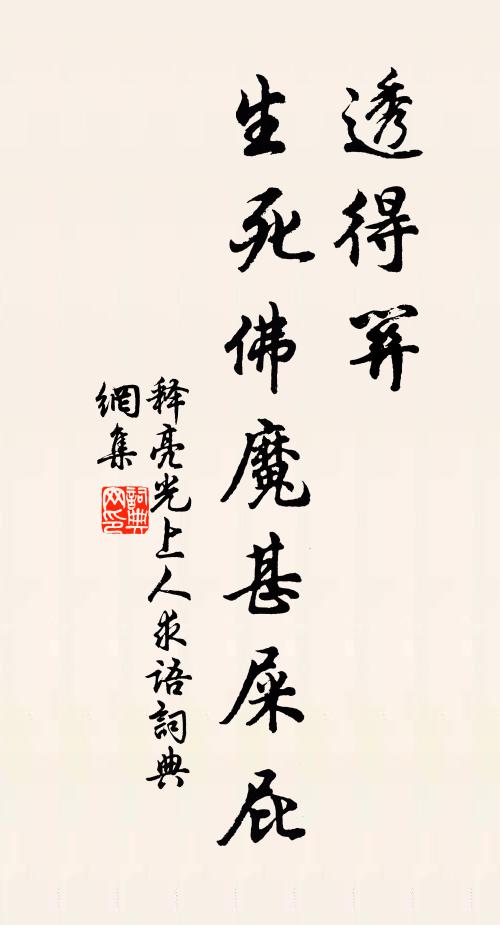 透得
生死佛魔甚屎屁
释亮光上人求語詞典
網集
詞典
网印